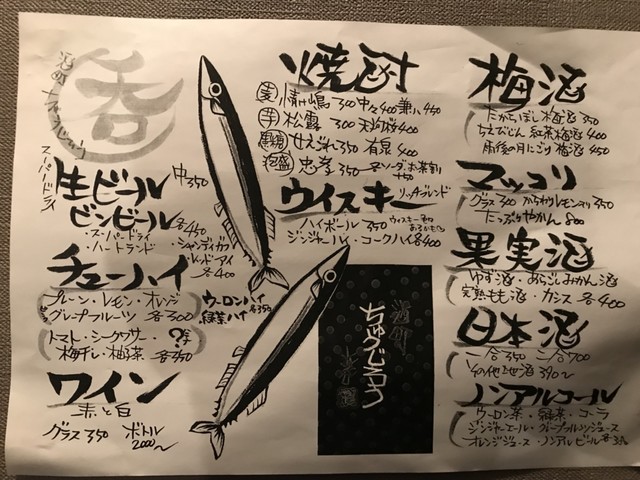 呑
スーパードライ
生ビール 中350
ビンビール 各450
・スーパードライ
・ハートランド
・シャンディガフ
・レッドアイ
各400
チューハイ
プレーン・レモン・オレンジ
グレープフルーツ 各300
トマト・シークワサー・?
梅干し・柚子茶 各350
ウーロンハイ
緑茶ハイ 各350
ワイン
赤と白
グラス350 ボトル
2000〜
焼酎
麦 情け嶋 300 中々400 兼八450
芋 松露 300
黒糖 せえれん350
泡盛 忠孝350 各ソーダ、お茶割
+50
ウイスキー
ハイボール 350
ジンジャーハイ・コークハイ各400
ちゅらじろう
梅酒
たからぼし梅酒 350
ちえびじん 紅茶梅酒 400
雨後の月にごり梅酒 450
マッコリ
グラス300 からわりレモン入り350
たっぷりやかん 800
果実酒
ゆず酒・あらごしみかん酒
完熟もも酒・カシス 各400
日本酒
一合350 二合700
その他地酒 390〜
ノンアルコール
ウーロン茶・緑茶・コーラ
ジンジャーエール・グレープフルーツジュース
オレンジジュース・ノンアルビール